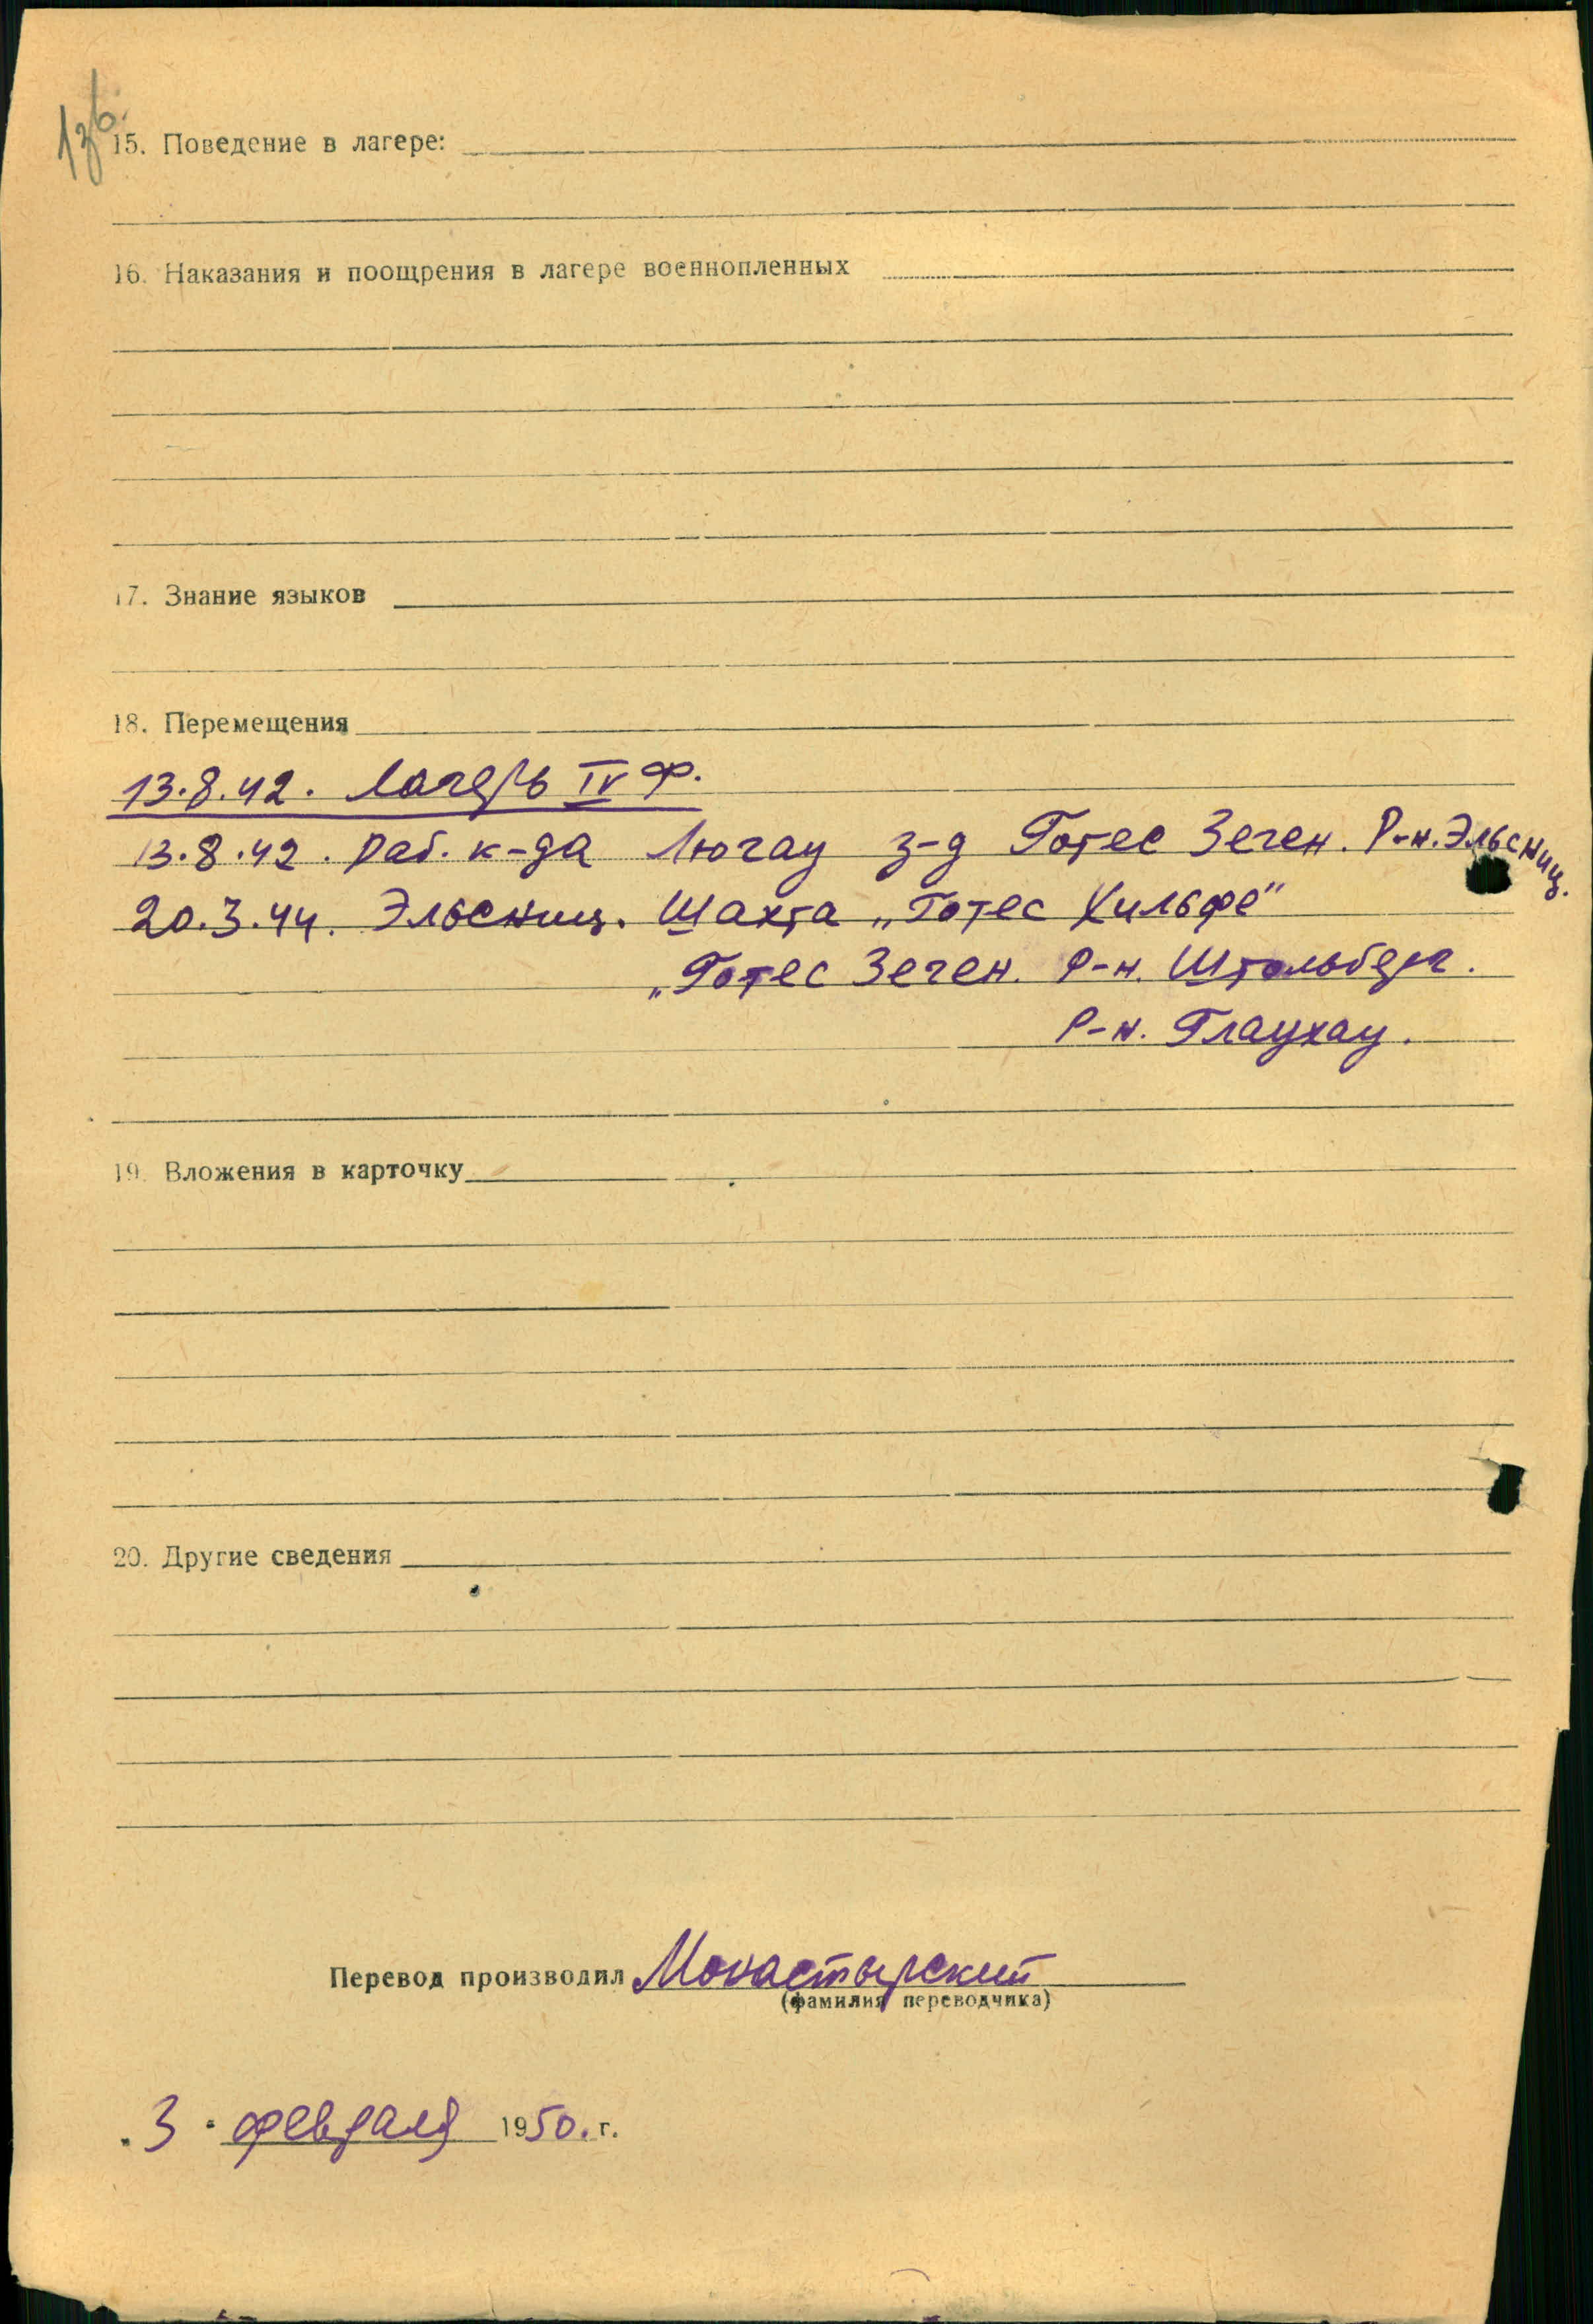 15. Поведение в лагере:
16. Наказания и поощрения в лагере военнопленных
17. Знание языков
18. Перемещения
13.8.42. Лагерь IV Ф.
13.8.42. Раб. к-да Люгау з-д Готес Зеген. Р-н. Эльсниц.
20.3.44. Эльсниц. Шахта „Готес Хильфе"
„Готес Зеген. Р-н. Штольберг.
Р-н. Глаухау.
19. Вложения в карточку
20. Другие сведения
Перевод производил Монастырский
(фамилия переводчика)
3 февраля 1950. г.